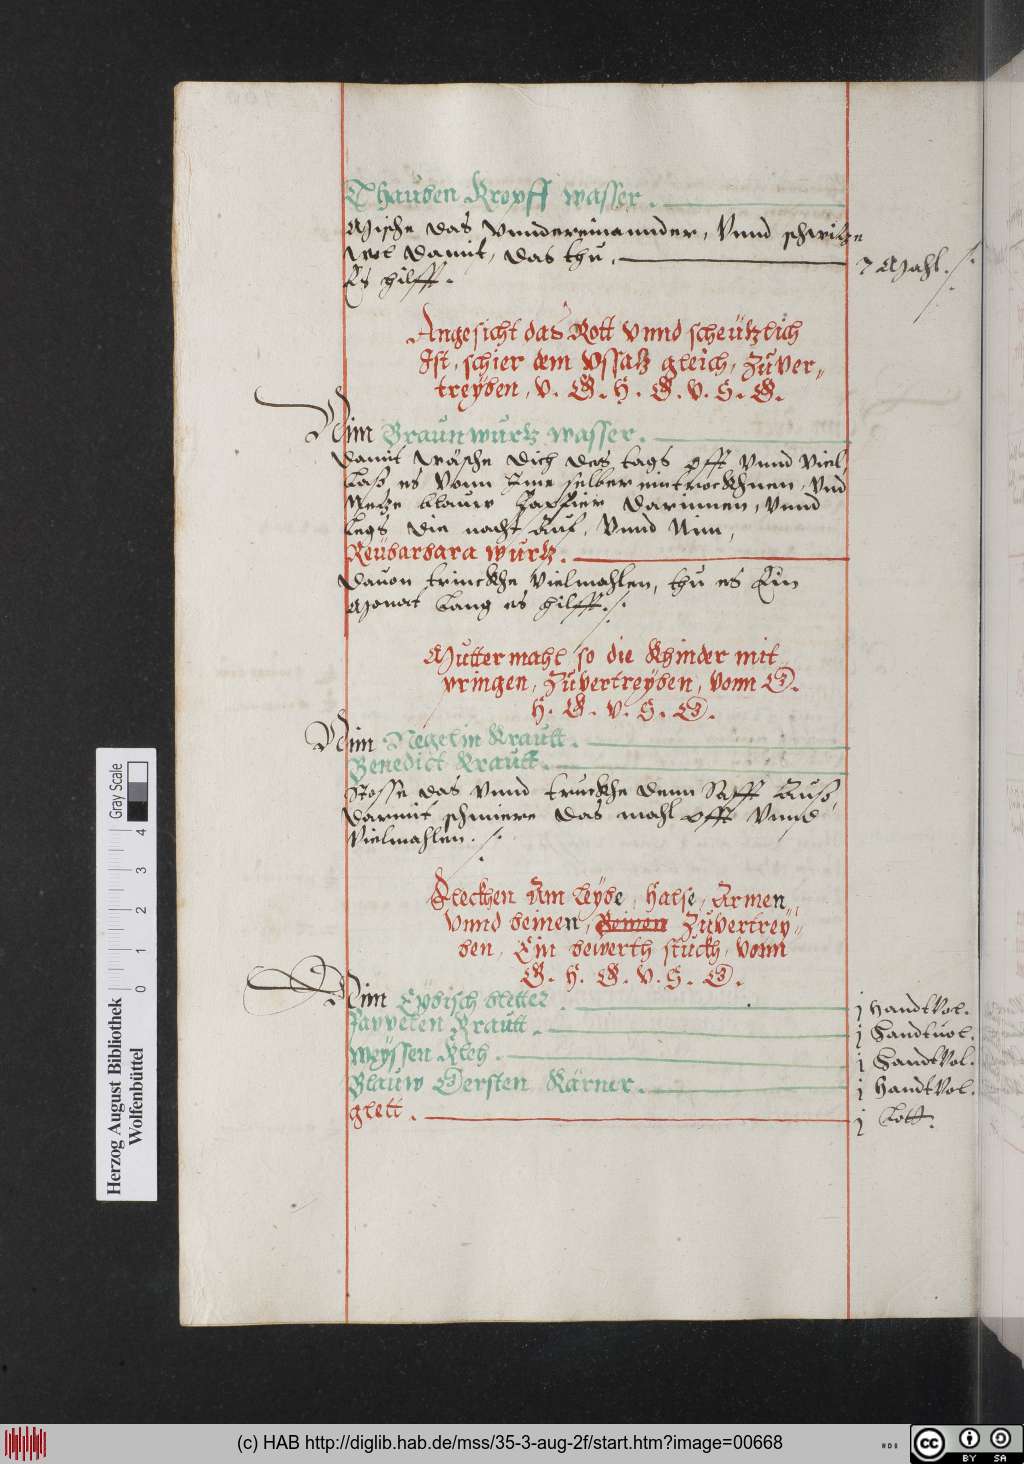 Thauben Kropff wasser.
Mische das vnndereinannder, Vnnd schmitze
wol damit, das thu, 7 Mahl.
Es hilfft.
Angesicht das Rott vnnd scheützlich
Ist, schier dem vssatz gleich, Züver-
treyben, v. G. H. G. v. S. G.
Nim Braunwurtz wasser.
damit wäsche dich des tags offt vnnd viel,
Laß es vonn Ime selber eintrockhnen, vnd
Netze blauw Pappier darinnen, vnnd
Legs die nacht Auf, Vnnd Nim,
Reübarbara wurtz.
dauon trinckhe vielmahlen, thu es Ein
Monat Lang es hilfft.
Mutter mahl so die Khinder mit
pringen, Züvertreyben, vonn G.
H. G. v. S. G.
Nim Negelin Krautt.
Benedict Krautt.
Stosse das vnnd truckhe denn Safft Auß,
darmit schmiere das mahl offt Vnnd
vielmahlen.
Fleckhen Am Leybe, Halse, Armen,
Vnnd beinen, Beinen Züvertrey-
ben, Ein bewerth stuckh, vonn
G. H. G. v. S. G.
Nim Eybisch bletter j Handtvol.
Pappelen Krautt. j Handtuol.
Weyssen Kleh. j Handtvol.
Blauw Gersten Kärner. j Handtvol.
glett. j Lott.
Gray Scale
0 1 2 3 4
Herzog August Bibliothek
Wolfenbüttel
(c) HAB http://diglib.hab.de/mss/35-3-aug-2f/start.htm?image=00668
cc BY SA